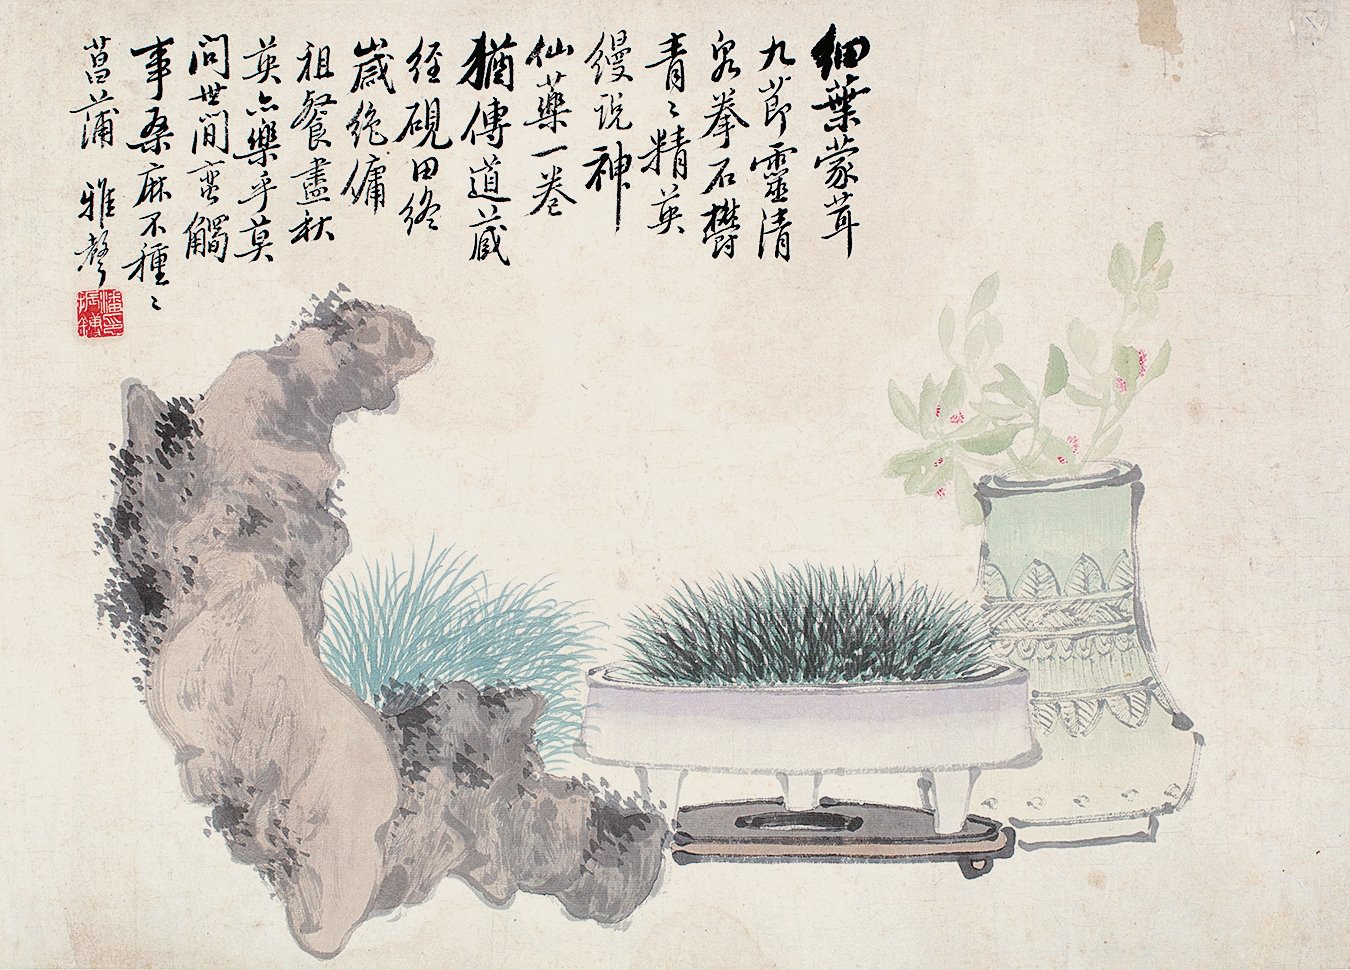 細葉蒙茸
九節靈清
泉拳石欝
青〻精英
縵說神
仙藥一卷
猶傳道藏
經硯田終
歲絶傭
租餐盡秋
英亦樂乎莫
問世間蛮觸
事桑麻不種〻
菖蒲 雅聲
潘印
振鏞